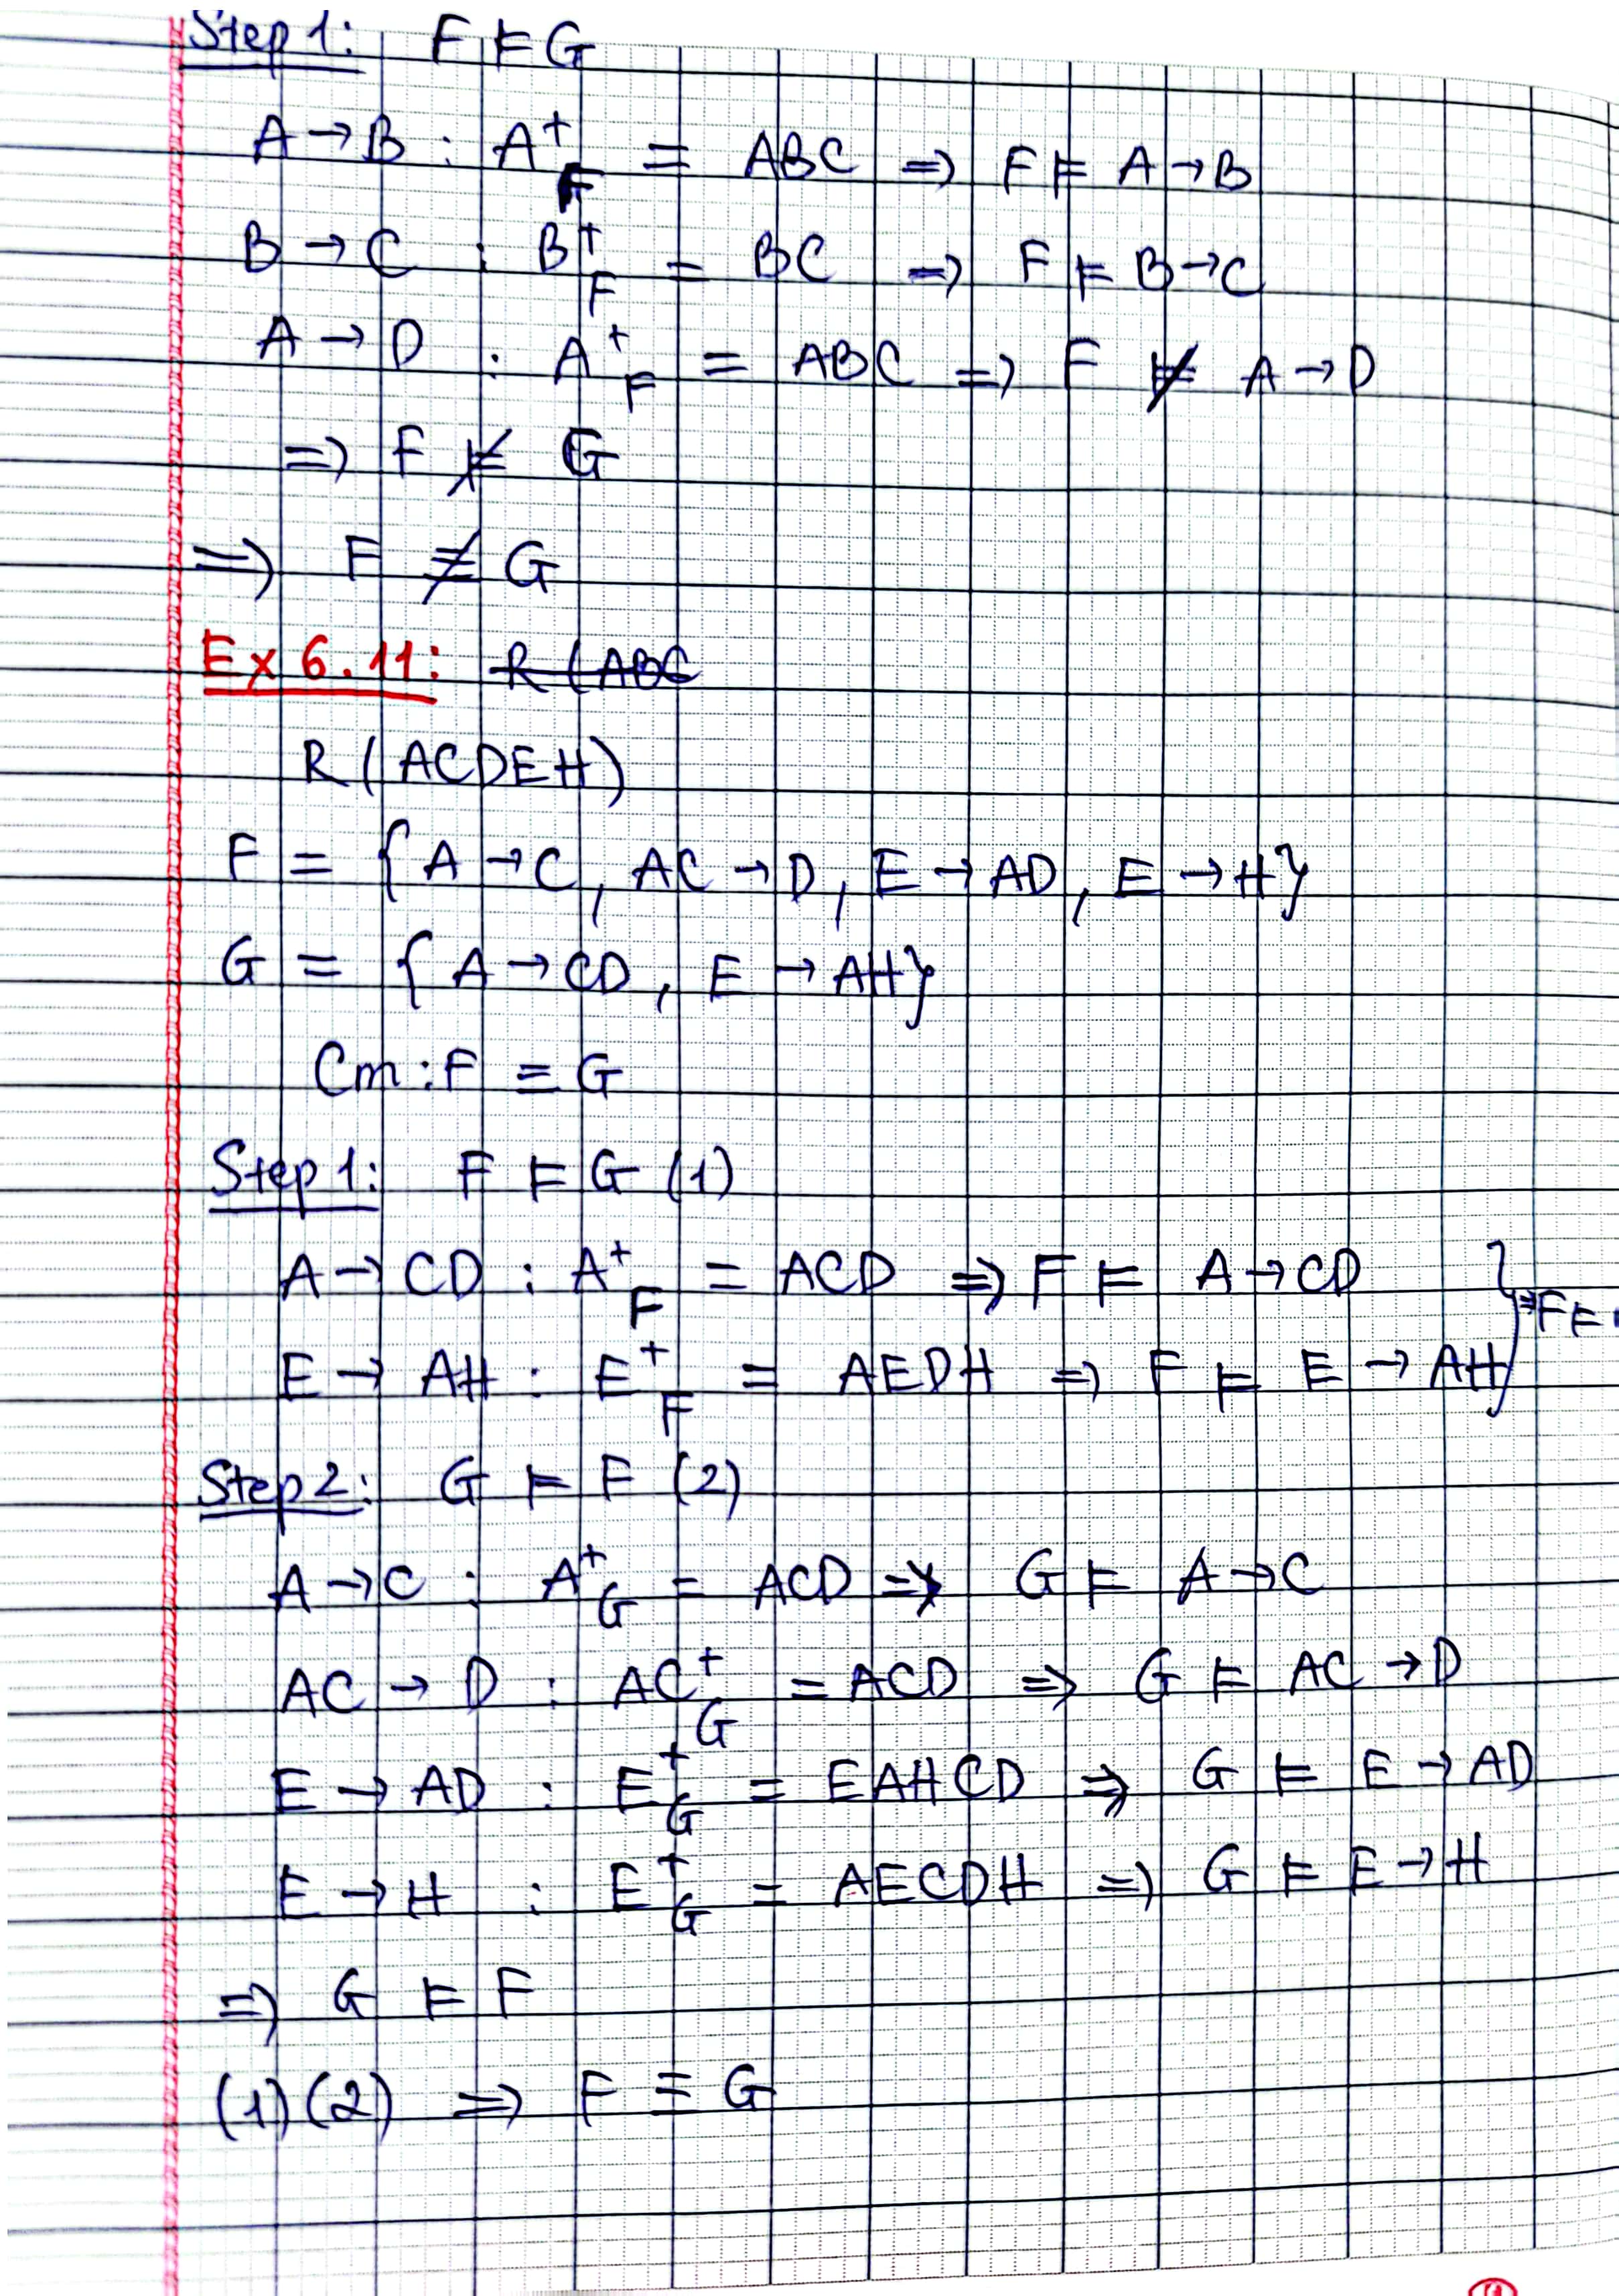 Step 1: F ⊨ G
A → B : A⁺_F = ABC ⇒ F ⊨ A → B
B → C : B⁺_F = BC ⇒ F ⊨ B → C
A → D : A⁺_F = ABC ⇒ F ⊭ A → D
⇒ F ⊭ G
⇒ F ≢ G
Ex 6.11: R (ABC
R (ACDEH)
F = { A → C, AC → D, E → AD, E → H}
G = { A → CD, E → AH}
Cm : F ≡ G
Step 1: F ⊨ G (1)
A → CD : A⁺_F = ACD ⇒ F ⊨ A → CD
E → AH : E⁺_F = AEDH ⇒ F ⊨ E → AH } ⇒ F ⊨
Step 2: G ⊨ F (2)
A → C : A⁺_G = ACD ⇒ G ⊨ A → C
AC → D : AC⁺_G = ACD ⇒ G ⊨ AC → D
E → AD : E⁺_G = EAHCD ⇒ G ⊨ E → AD
E → H : E⁺_G = AECDH ⇒ G ⊨ E → H
⇒ G ⊨ F
(1) (2) ⇒ F ≡ G